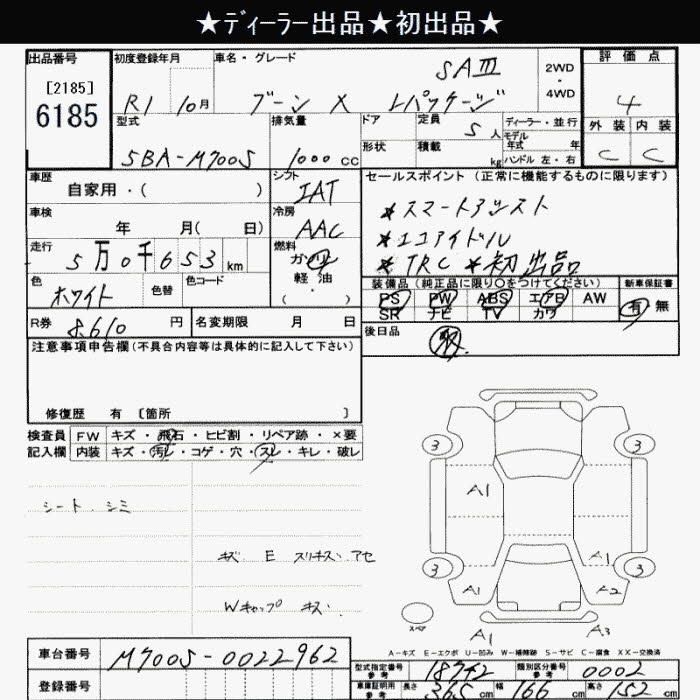 ★ﾃﾞｨｰﾗｰ出品★初出品★
出品番号 初度登録年月 車名・グレード 評価点
[2185]
6185
R1 10月 ブーン X LパッケージSAⅢ 2WD・4WD 4
型式 排気量 ドア 定員 ディーラー・並行 外装 内装
5BA-M700S 1000 CC 形状 積載 5人 kg モデル年式 年 ハンドル 左・右 C C
車歴 シフト セールスポイント (正常に機能するものに限ります)
自家用・( ) IAT
車検 冷房 *スマートアシスト
年 月( 日) AAC *エコアイドル
走行 燃料 *TRC *初出品
5万0千653km ガソリン
軽油
・( )
色 色替 色コード
ホワイト
装備品 (純正品に限り○をつけてください) 新車保証書
PS PW ABS エアB AW 有 無
SR ナビ TV カワ
R券 8,610 円 名変期限 月 日
後日品
注意事項申告欄(不具合内容等は具体的に記入して下さい)
修復歴 有 [箇所 ]
検査員 FW キズ・飛石・ヒビ割・リペア跡・×要
記入欄 内装 キズ・汚レ・コゲ・穴・スレ・キレ・破レ
シート.シミ
キズ E スリキズ.アセ
Wキャップ キズ.
3 3
A1
A1
3 3
A1 A2
スペア
A1 A3
A-キズ E-エクボ U-凹み W-補修跡 S-サビ C-腐食 XX-交換済
車台番号 M700S-0022962
型式指定番号 参考 18742 類別区分番号 参考 0002
登録番号
車庫証明用 参考 長さ 365 cm 幅 166 cm 高さ 152 cm